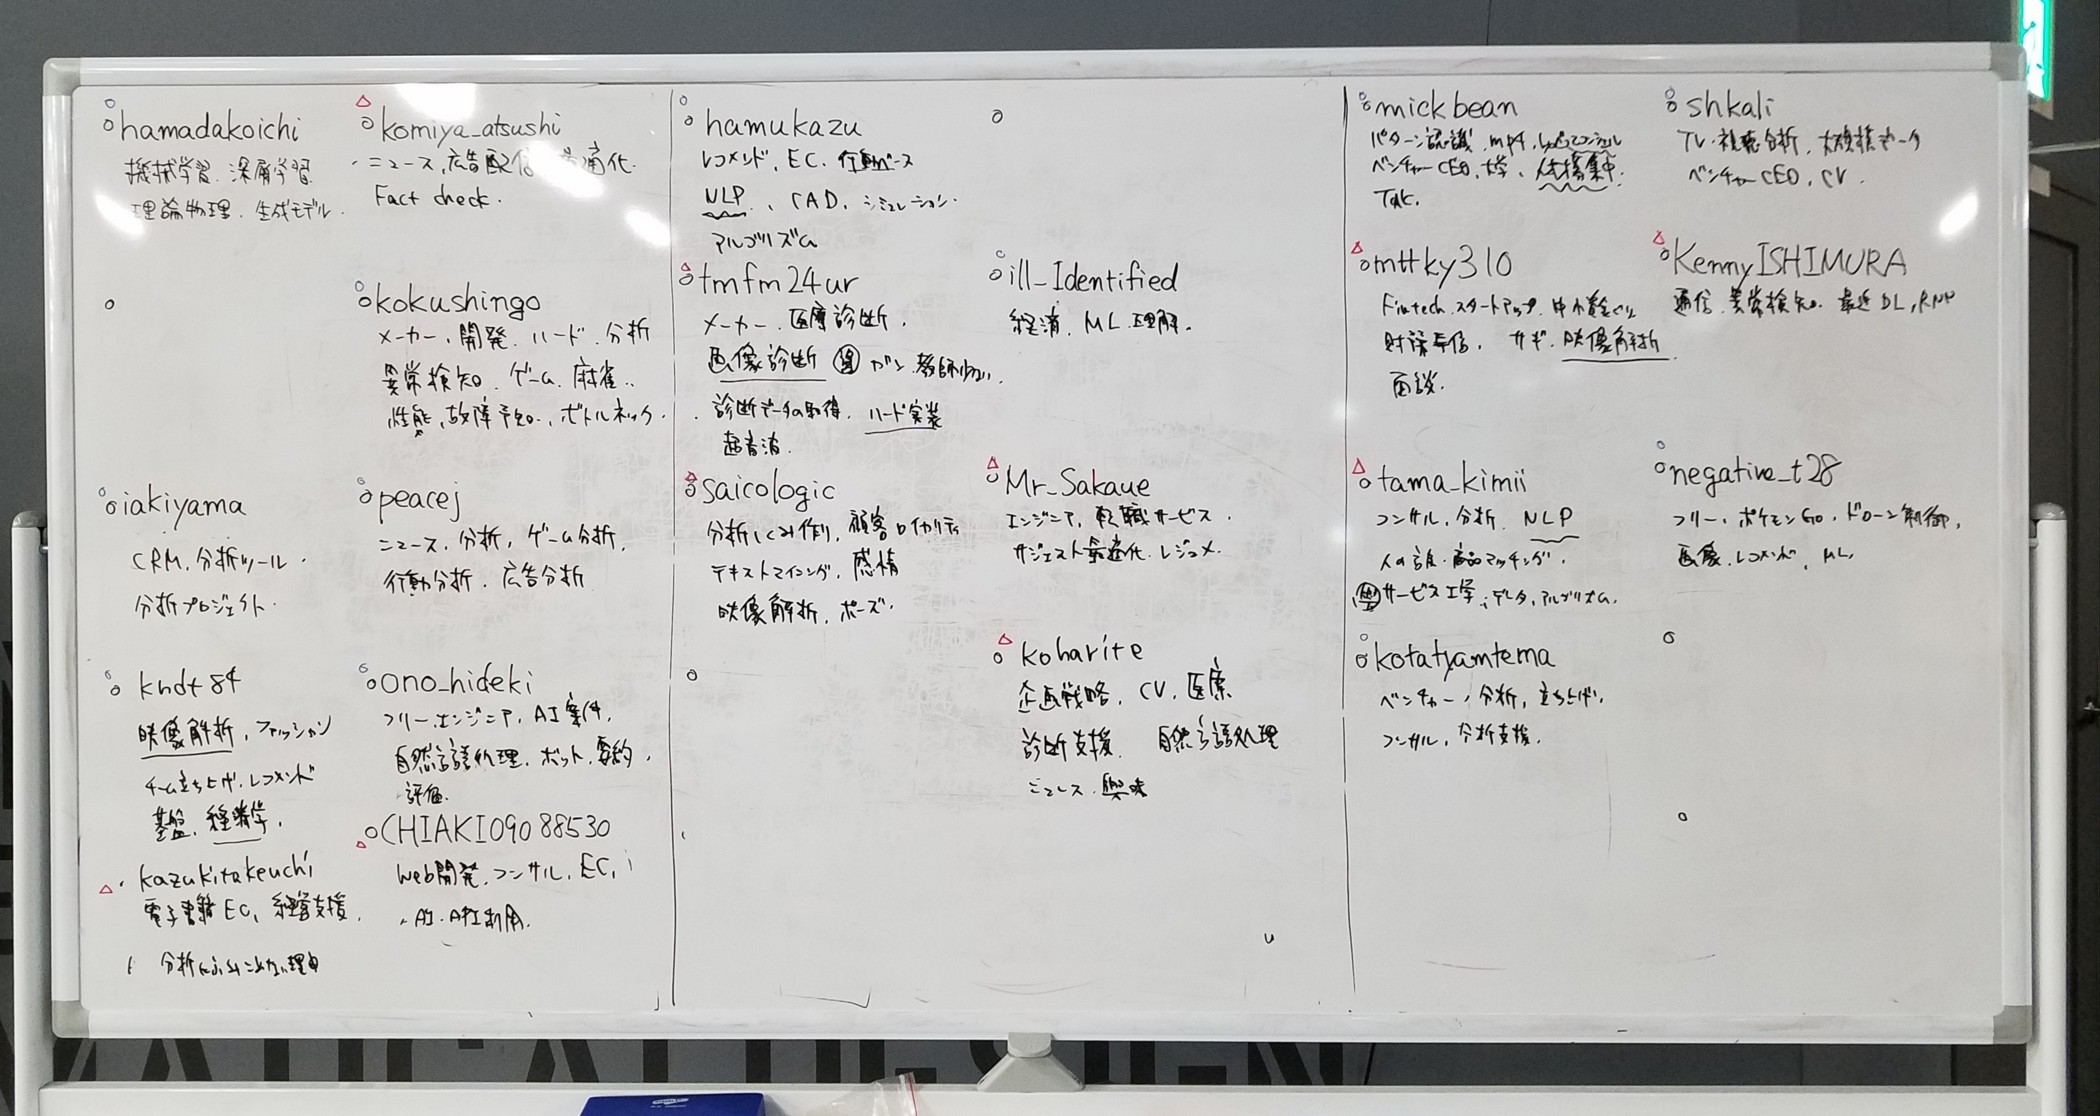 hamadakoichi
機械学習、深層学習
理論物理、生成モデル.
komiya_atsushi
ニュース,広告配信 最適化.
Fact check.
kokushingo
メーカー、開発、ハード、分析
異常検知、ゲーム、麻雀..
性能,故障予知.,ボトルネック.
iakiyama
CRM.分析ツール.
分析プロジェクト.
peacej
ニュース,分析,ゲーム分析,
行動分析.広告分析
kndt84
映像解析,ファッション
チーム立ち上げ,レコメンド
基盤,
ono_hideki
フリーエンジニア,AI案件,
自然言語処理,ボット,要約,
評価.
kazukitakeuchi
電子書籍EC,経営支援,
分析
CHIAKI09088530
Web開発,コンサル,EC,
AI.API利用.
hamukazu
レコメンド,EC.行動ベース
NLP.、CAD.シミュレーション.
アルゴリズム
tmfm24ur
メーカー.医療診断.
画像診断 ガン.教師少ない.
診断データの取得.ハード実装
超音波.
ill_Identified
経済.ML.理解.
saicologic
分析しくみ作り,顧客ロイヤリティ
テキストマイニング,感情
映像解析,ポーズ.
Mr_Sakaue
エンジニア,転職サービス.
サジェスト最適化.レジュメ.
koharite
企画戦略,CV,医療
診断支援. 自然言語処理
ニュース.興味
mickbean
パターン認識.mp4,
ベンチャーCEO,大学,
Tak.
shkali
TV.視聴分析,大規模データ
ベンチャーCEO,CV.
mttky310
Fintech.スタートアップ.
サギ.映像解析
面談.
KennyISHIMURA
通信.異常検知.最近DL,RNN
tama_kimii
コンサル,分析.NLP
商品マッチング.
サービス工学,データ,アルゴリズム.
negative_t28
フリー,ポケモンGo.ドローン制御,
画像.レコメンド,ML,
kotatyamtema
ベンチャー,分析,立ち上げ,
コンサル,分析支援.